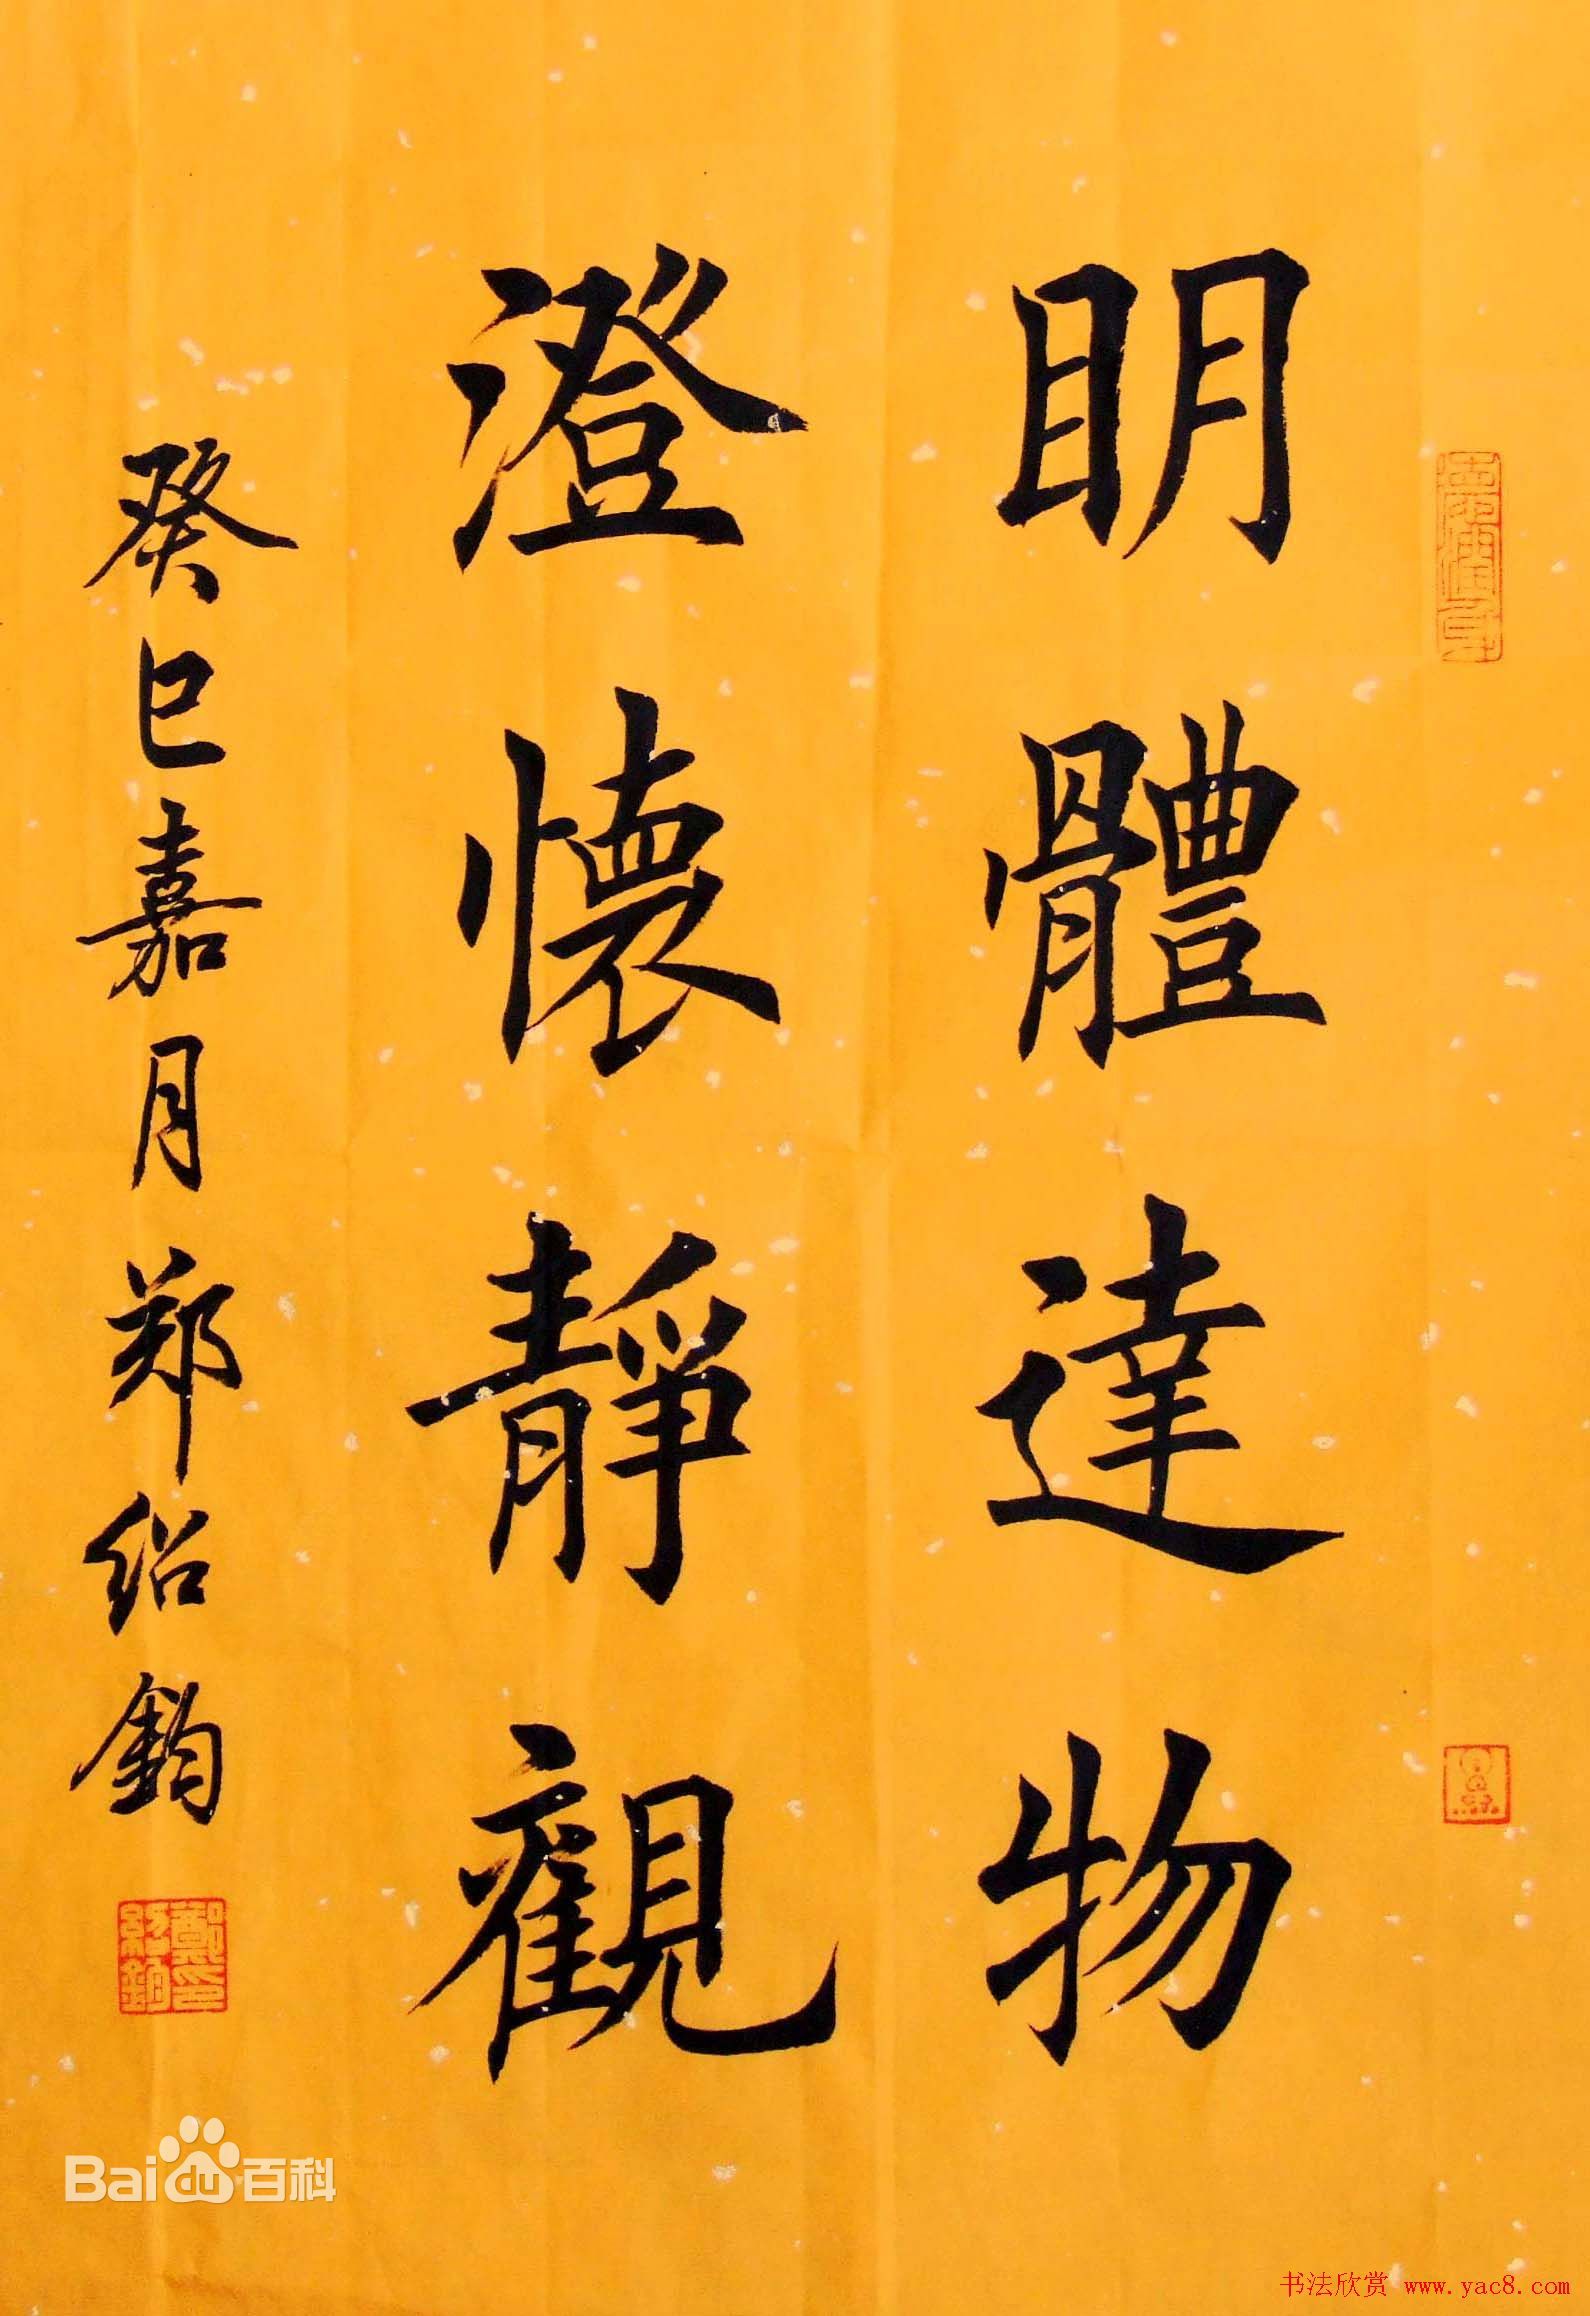 明體達物
澄懷靜觀
癸巳嘉月郑绍鈞
鄭印
紹鈞
Bai du 百科
书法欣赏 www.yac8.com